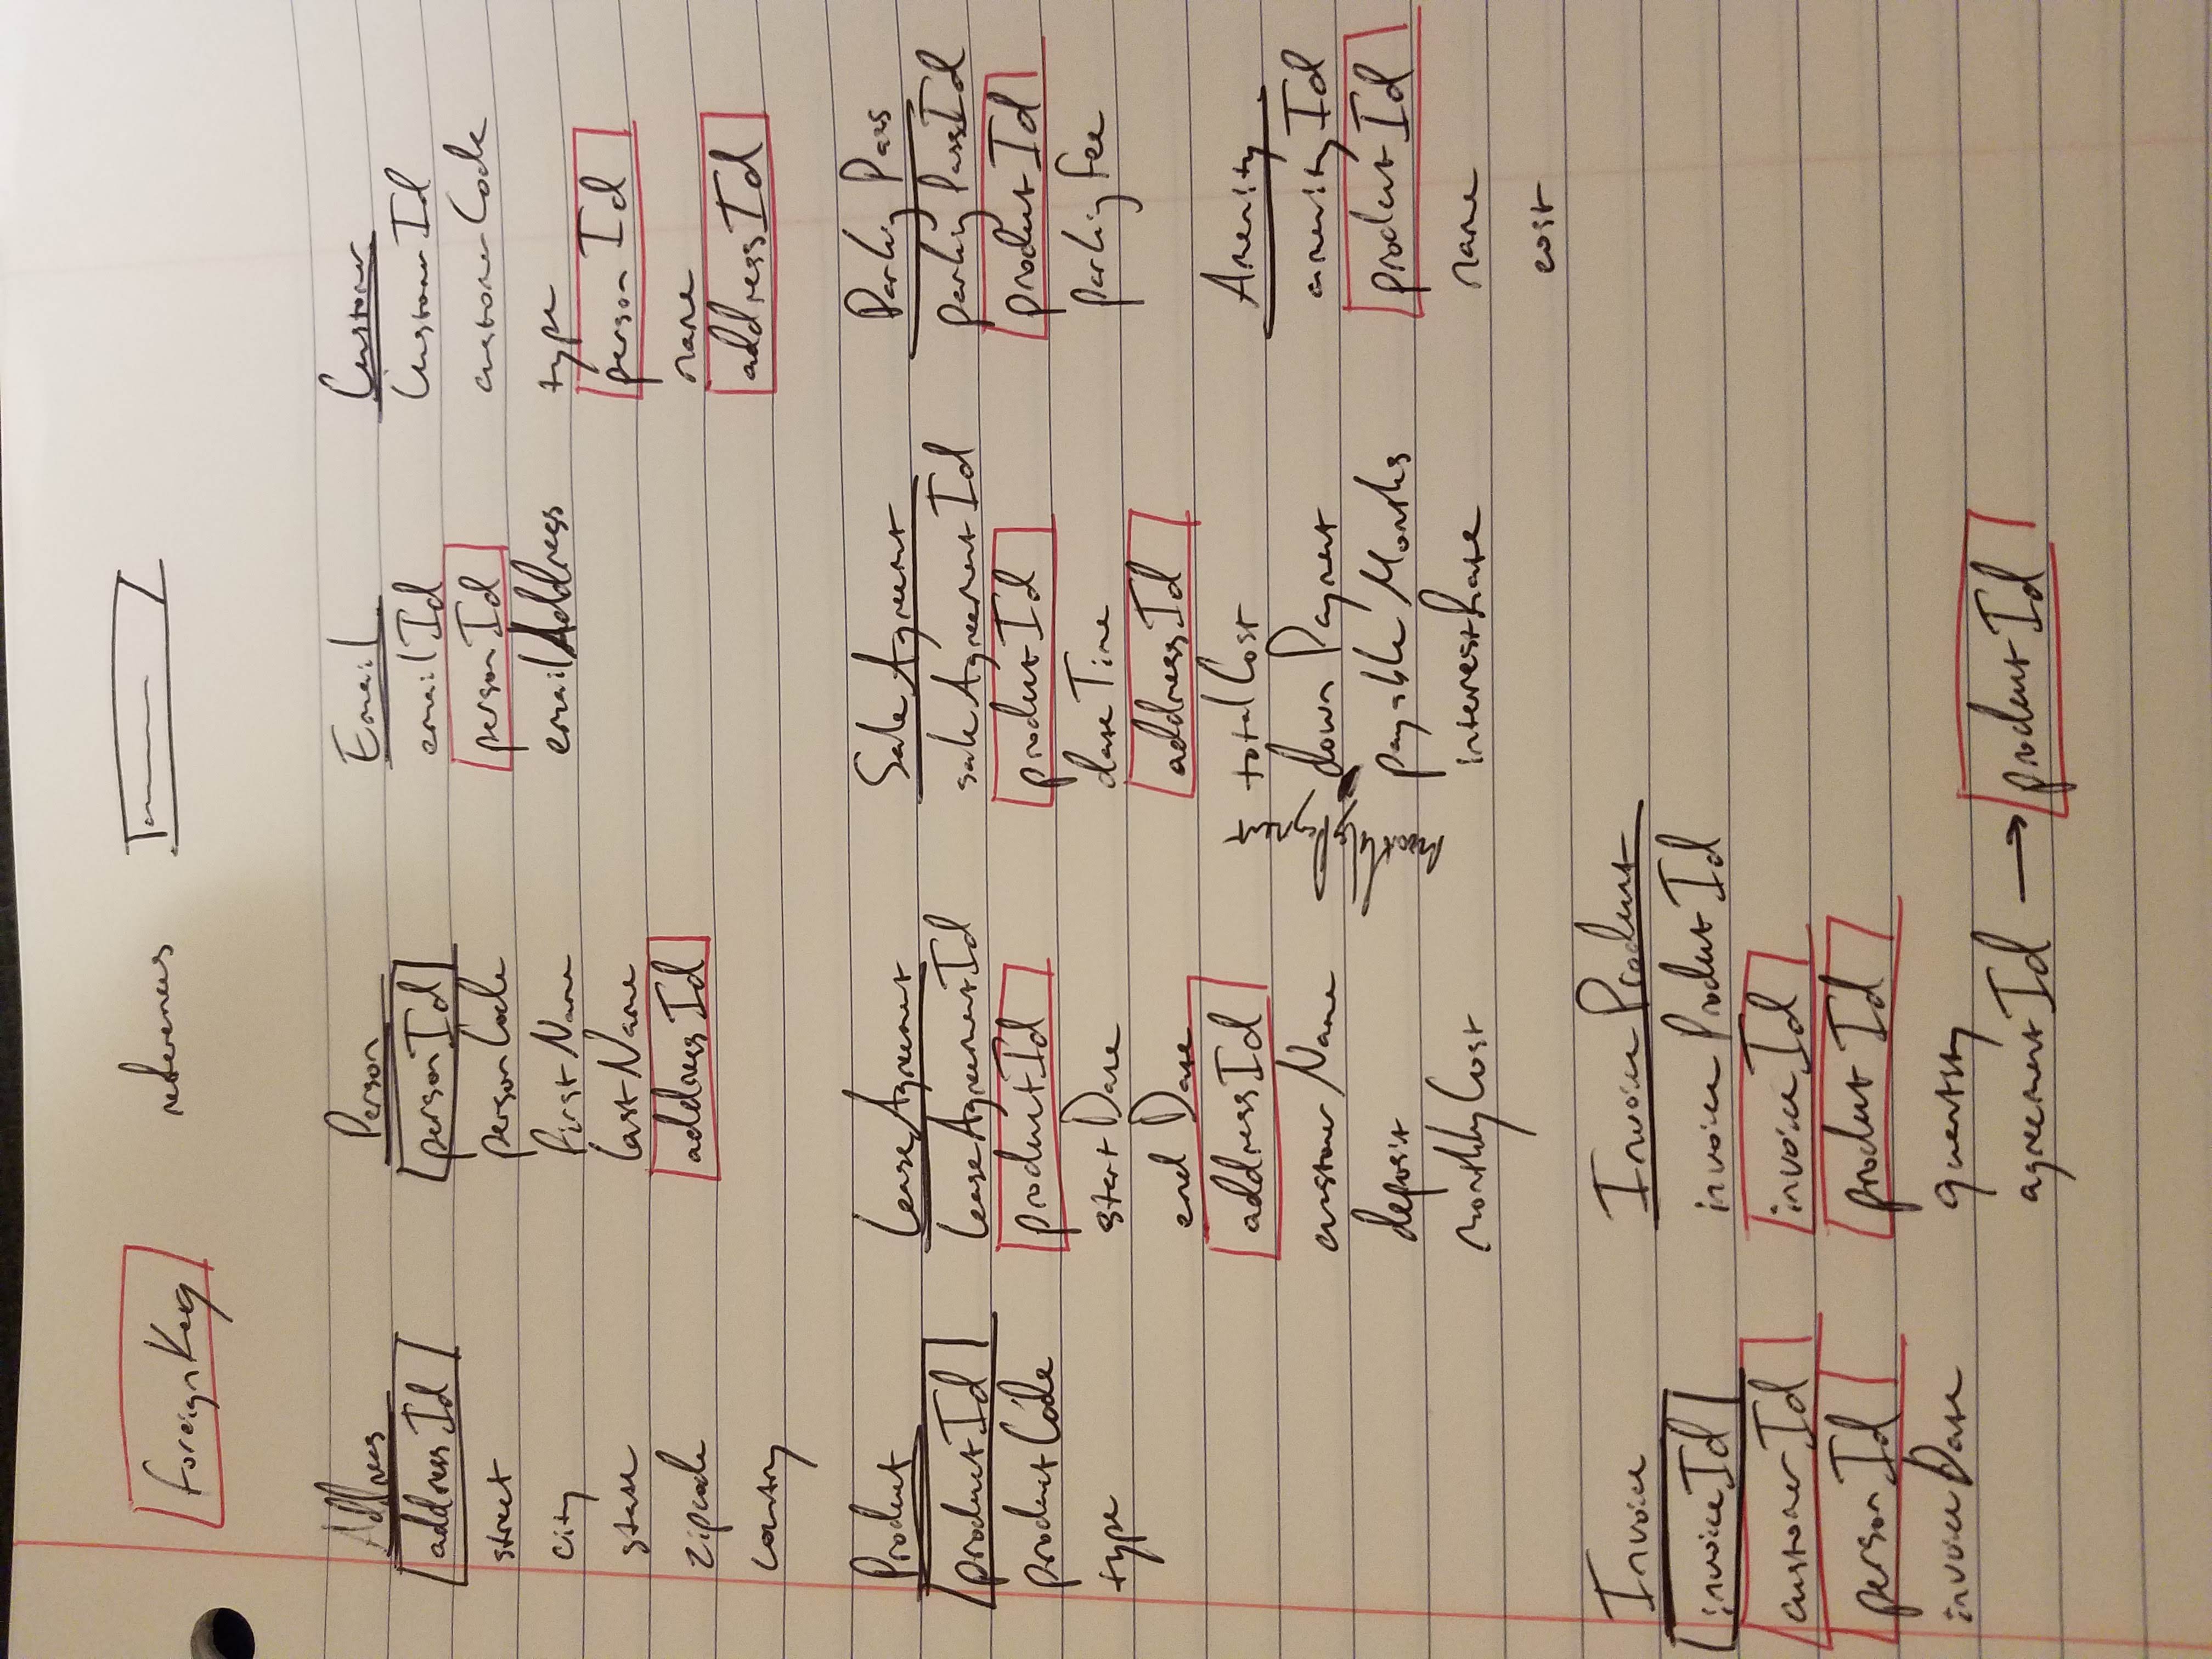 Foreign Key references
Address
addressId
street
city
state
zipcode
country
Person
personId
personCode
firstName
lastName
addressId
Email
emailId
personId
emailAddress
Customer
CustomerId
customerCode
type
personId
name
addressId
Product
productId
productCode
type
Lease Agreement
leaseAgreementId
productId
start Date
end Date
addressId
customerName
deposit
monthlyCost
Sale Agreement
saleAgreementId
productId
dateTime
addressId
totalCost
down Payment
payable Months
interestRate
Parking Pass
parkingPassId
productId
parkingFee
Amenity
amenityId
productId
name
cost
Invoice
invoiceId
customerId
personId
invoiceDate
InvoiceProduct
invoiceProductId
invoiceId
productId
quantity
agreementId → productId